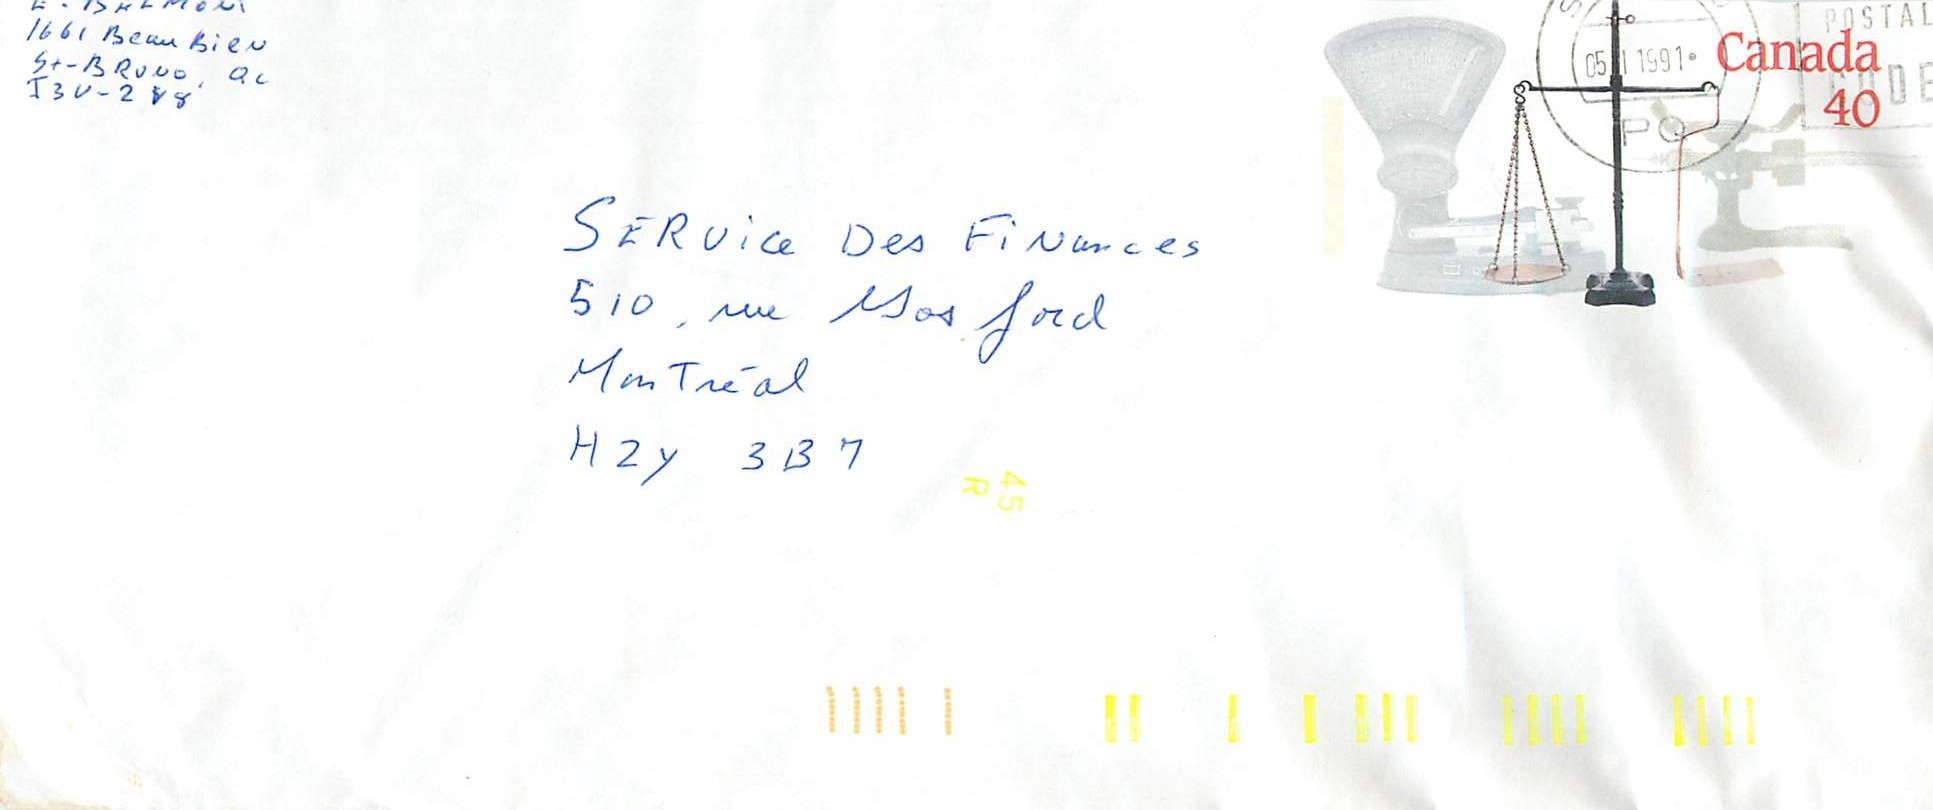 E. BELMONT
1661 Beau Bien
St-BRUNO, QC
J3V-
Canada
40
POSTAL
CODE
1991
PO
SERVice Des FiNances
510, rue Gosford
Montréal
H2Y 3B7
45
R